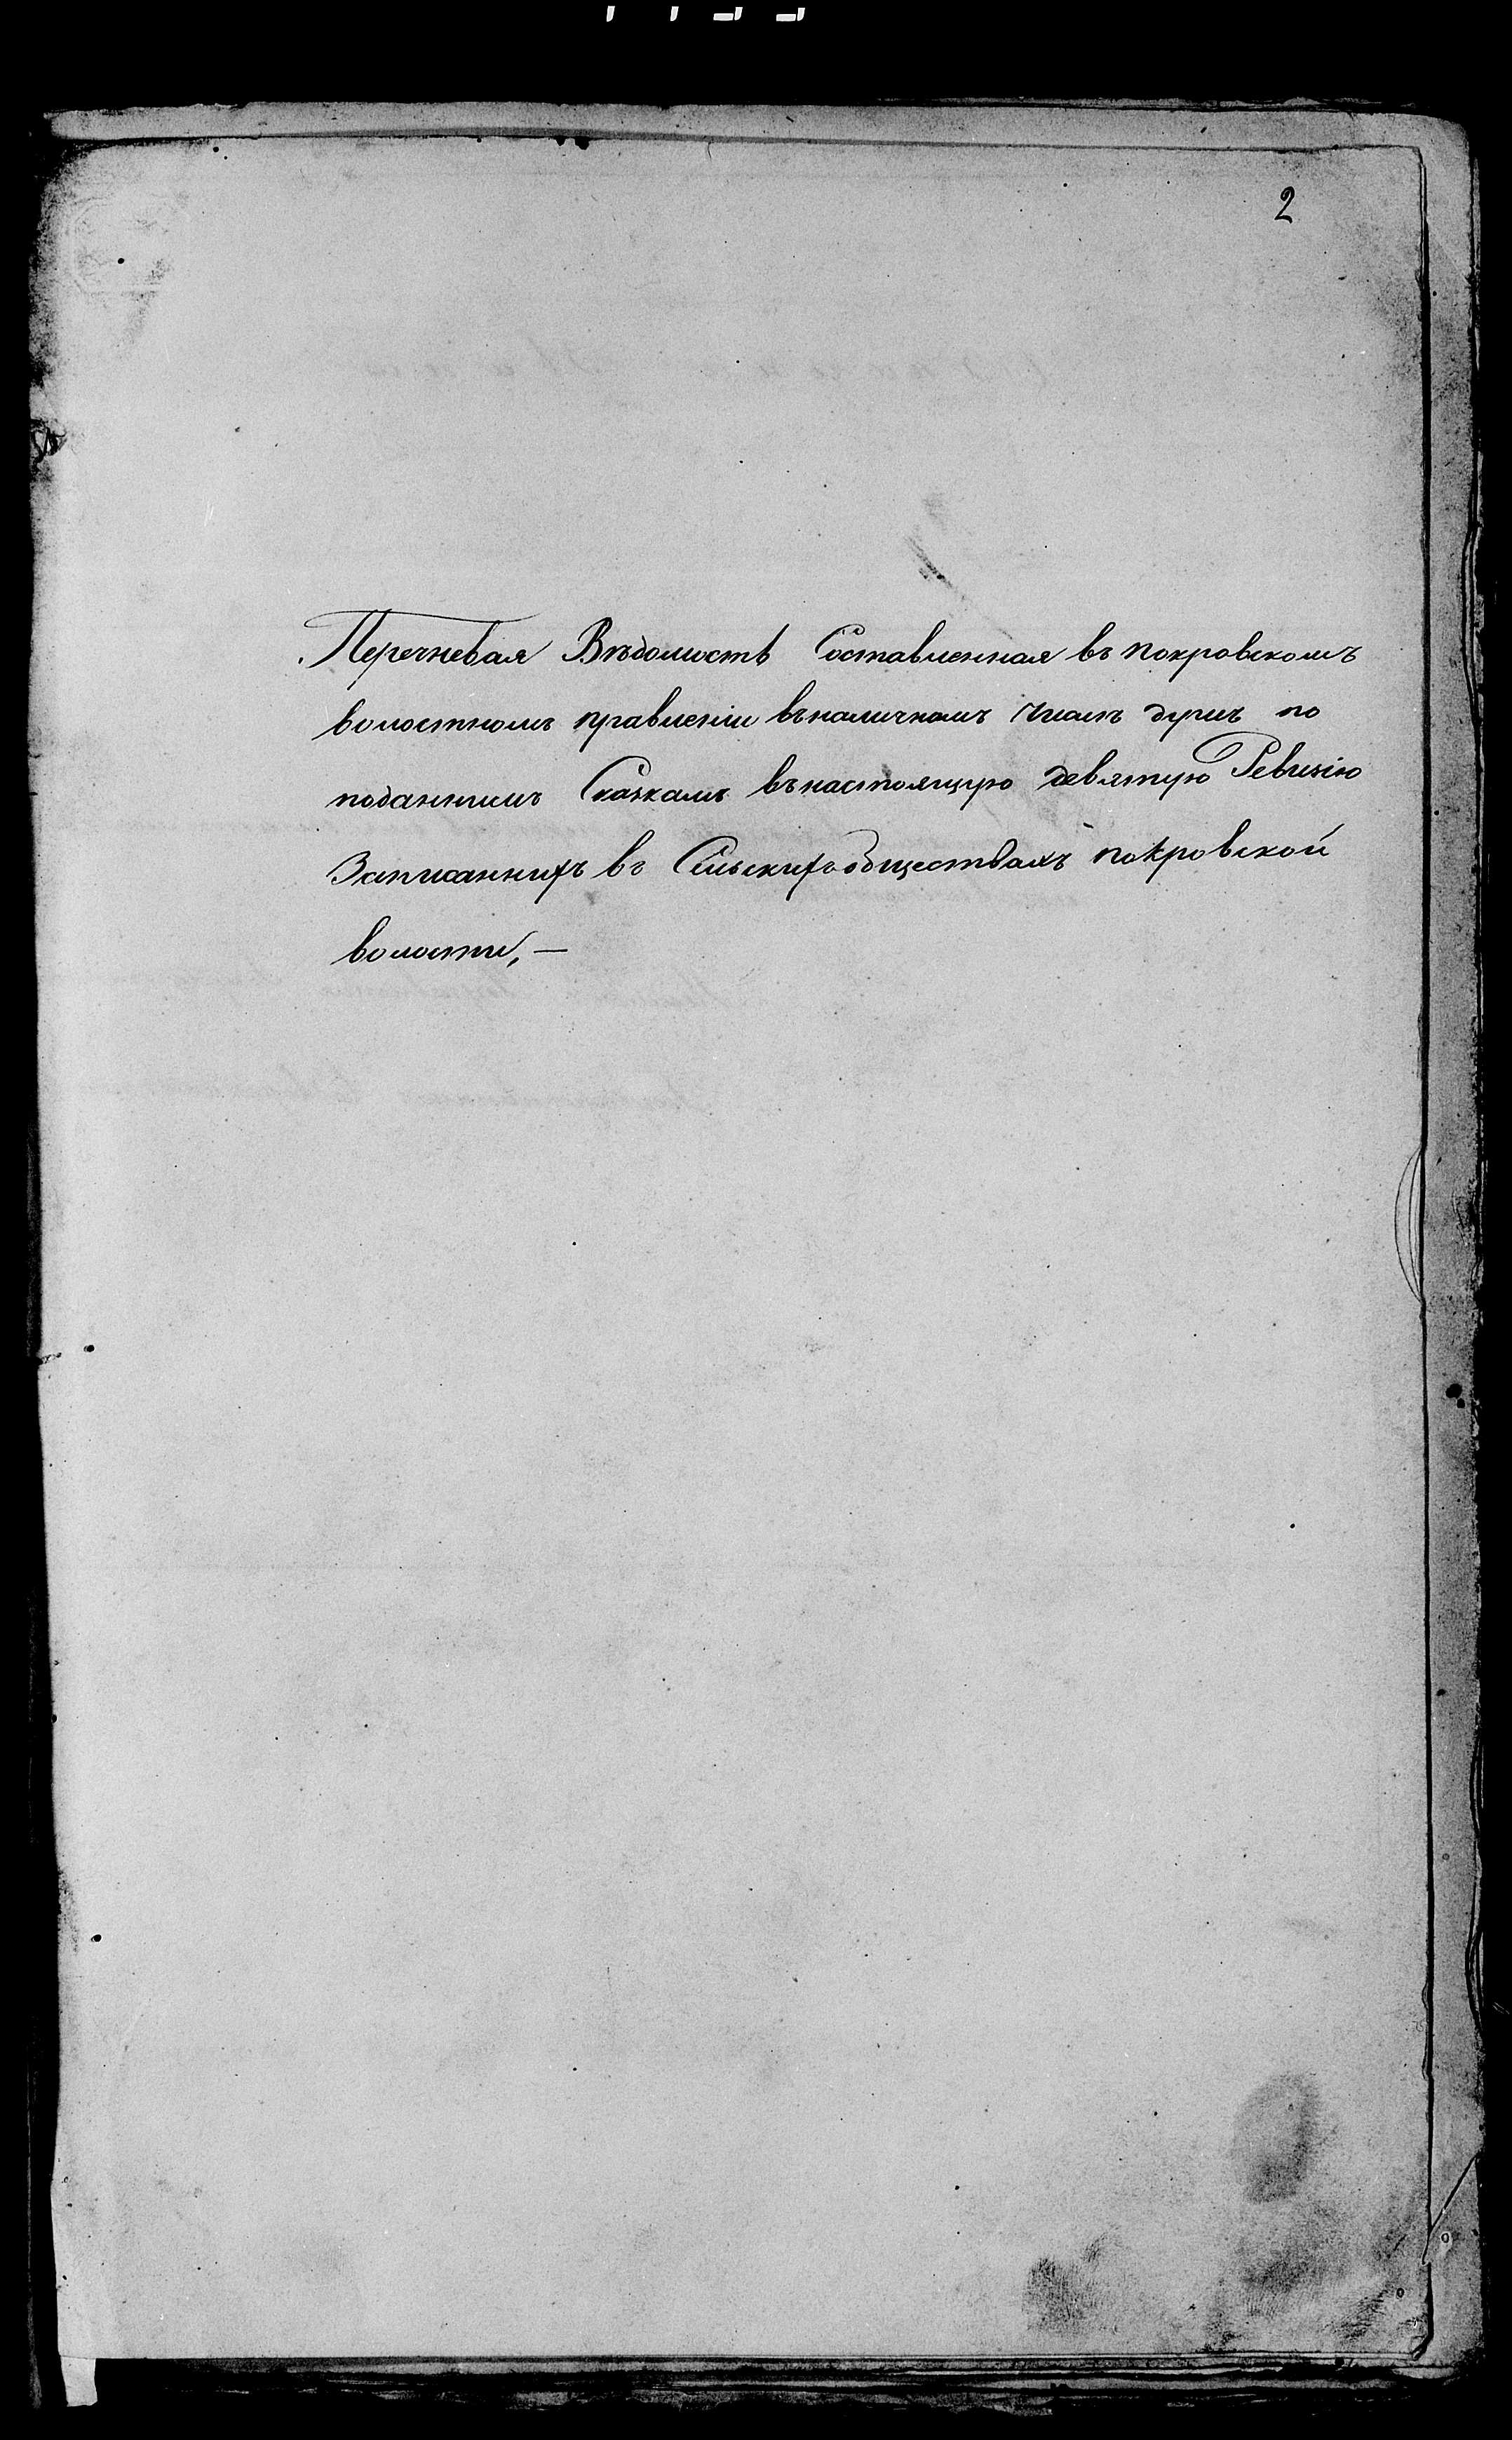 2
Перечневая Вѣдомость Составленная въ покровскомъ
волостномъ правленіи въ наличномъ числѣ душъ по
поданнымъ Сказкамъ въ настоящую девятую Ревизію
Записанныхъ въ Сельскихъ обществахъ покровской
волости, —